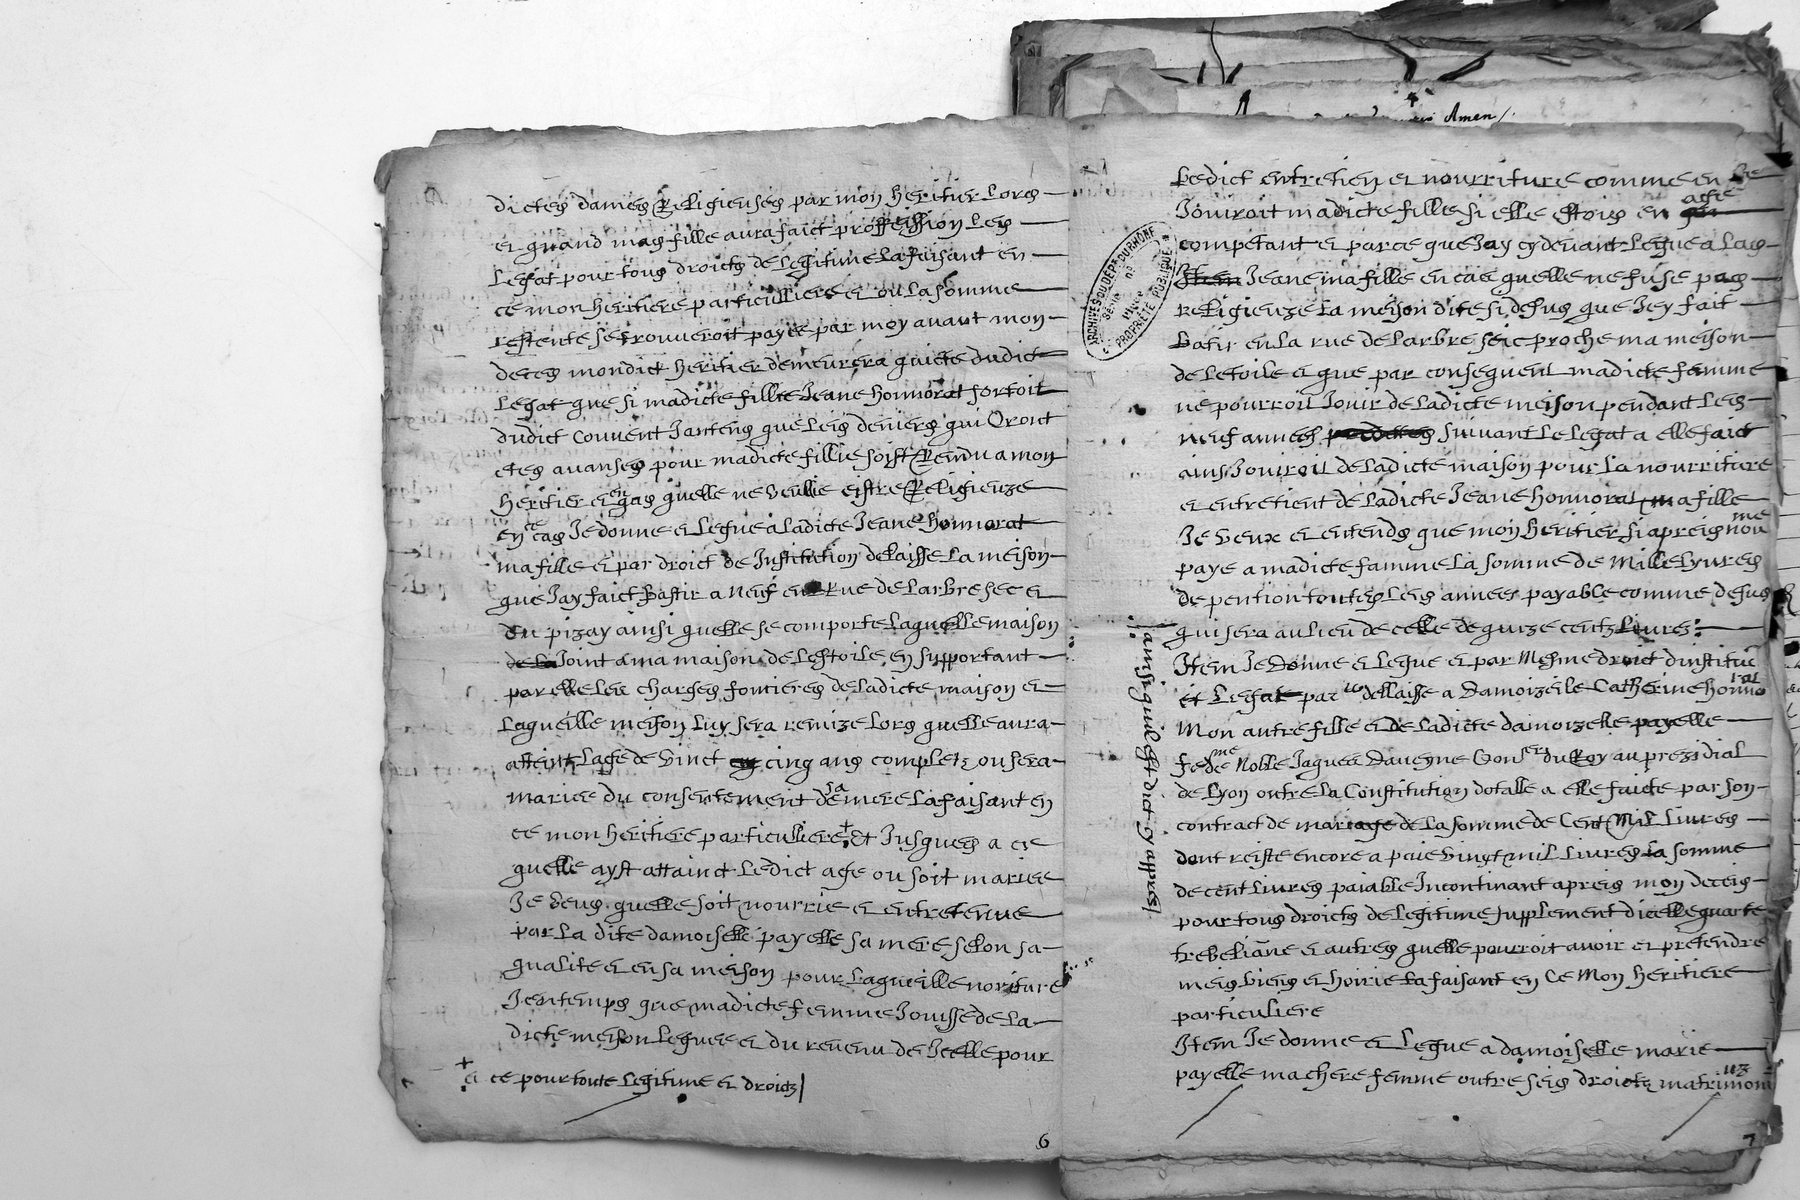 dictes dames Religieuses par mon heritier Lors
et quand mas fille aura faict proffeission Leis
Legat pour tous droicts de Legitime La faisant en
ce mon heritiere particulliere et ou La somme
restente se trouveroit payee par moy avant mon
deces mondict heritier demeurera quicte dudict
Legat que si madicte fillie Jeane honnorat sortoit
dudict Couvent Jantens que Leis deniers qui Oront
etes avanses pour madicte fillie soist Rendu a mon
heritier et en cas quelle ne veullie eistre Religieuze
en ce cas Je donne et Legue a Ladicte Jeane honnorat
ma fille et par droict de Institution delaisse La meison
que Jay faict Bastir a neuf en Rue de Larbre sec et
du pizay ainsi quelle se comporte Laquelle maison
de La Joint a ma maison de Lestoile en supportant
par elle Lee charges fontieres de Ladicte maison et
Laqueille meison Luy sera remize Lors quelle aura
atteint Lage de vinct cinq ans completz ou sera
mariee du consentement de sa mere La faisant en
ce mon heritiere particulliere + et Jusques a ce
quelle ayst attainct Ledict age ou soit mariee
Je veus quelle soit nourrie et entretenue
par La dite damoiselle payelle sa mere selon sa
qualite et en sa meison pour Laqueille noriture
Jentemps que madicte femme Jouisse de La
dicte meison Leguee et du revenu de Icelle pour
+ et ce pour toute Legitime et droictz
6
Ledict entretien et nourriture comme en
Jouiroit madicte fillie si elle estois en age
competant et parce que Jay cy devant Legue a Las
Item Jeane ma fille en cas quelle ne fuse pas
Religieuze La meison dite si desus que Jey fait
Batir en La rue de Larbre seic proche ma meison
de Letoile et que par consequent madicte femme
ne pourroit Jouir de Ladicte meison pendant Leis
neuf annees suivant Le Legat a elle faict
ains Jouiroit de Ladicte maison pour La nourriture
et entretient de Ladicte Jeane honnorat ma fille
Je veux et entends que mon heritier si apreis nomme
paye a madicte famme La somme de Mille Lyvres
de pention toutes Leis annees payable comme desus
qui sera au lieu de celle de quize centz Livres
Item Je Donne et Legue et par Mesme droict dinstitu͠
et Legat par dellaisse a Damoizeile Catherine honnorat
Mon autre fille et de Ladicte damoizelle payelle
feme de Noble Jaques Davegne Con͠sers du Roy au prezidial
de Lyon outre La Constitution dotalle a elle faicte par son
contract de mariage de La somme de Cent Mil Livres
dont reiste encore a paie vingt mil Livres La somme
de cent Livres paiable Incontinant apreis mon deceis
pour tous droicts de Legitime supplement dicelle quarte
trebeliane et autres quelle pourroit avoir et pretendre
meis biens et hoirie La faisant en ce Mon heritiere
particuliere
Item Je donne et Legue a damoiselle marie
payelle ma chere femme outre seis droictz matrimoniuz
7
ainsi quil est dict cy appres
ARCHIVES DU DÉPT DU RHÔNE
SÉRIE
n°
PIÈCE
PROPRIÉTÉ PUBLIQUE
Amen